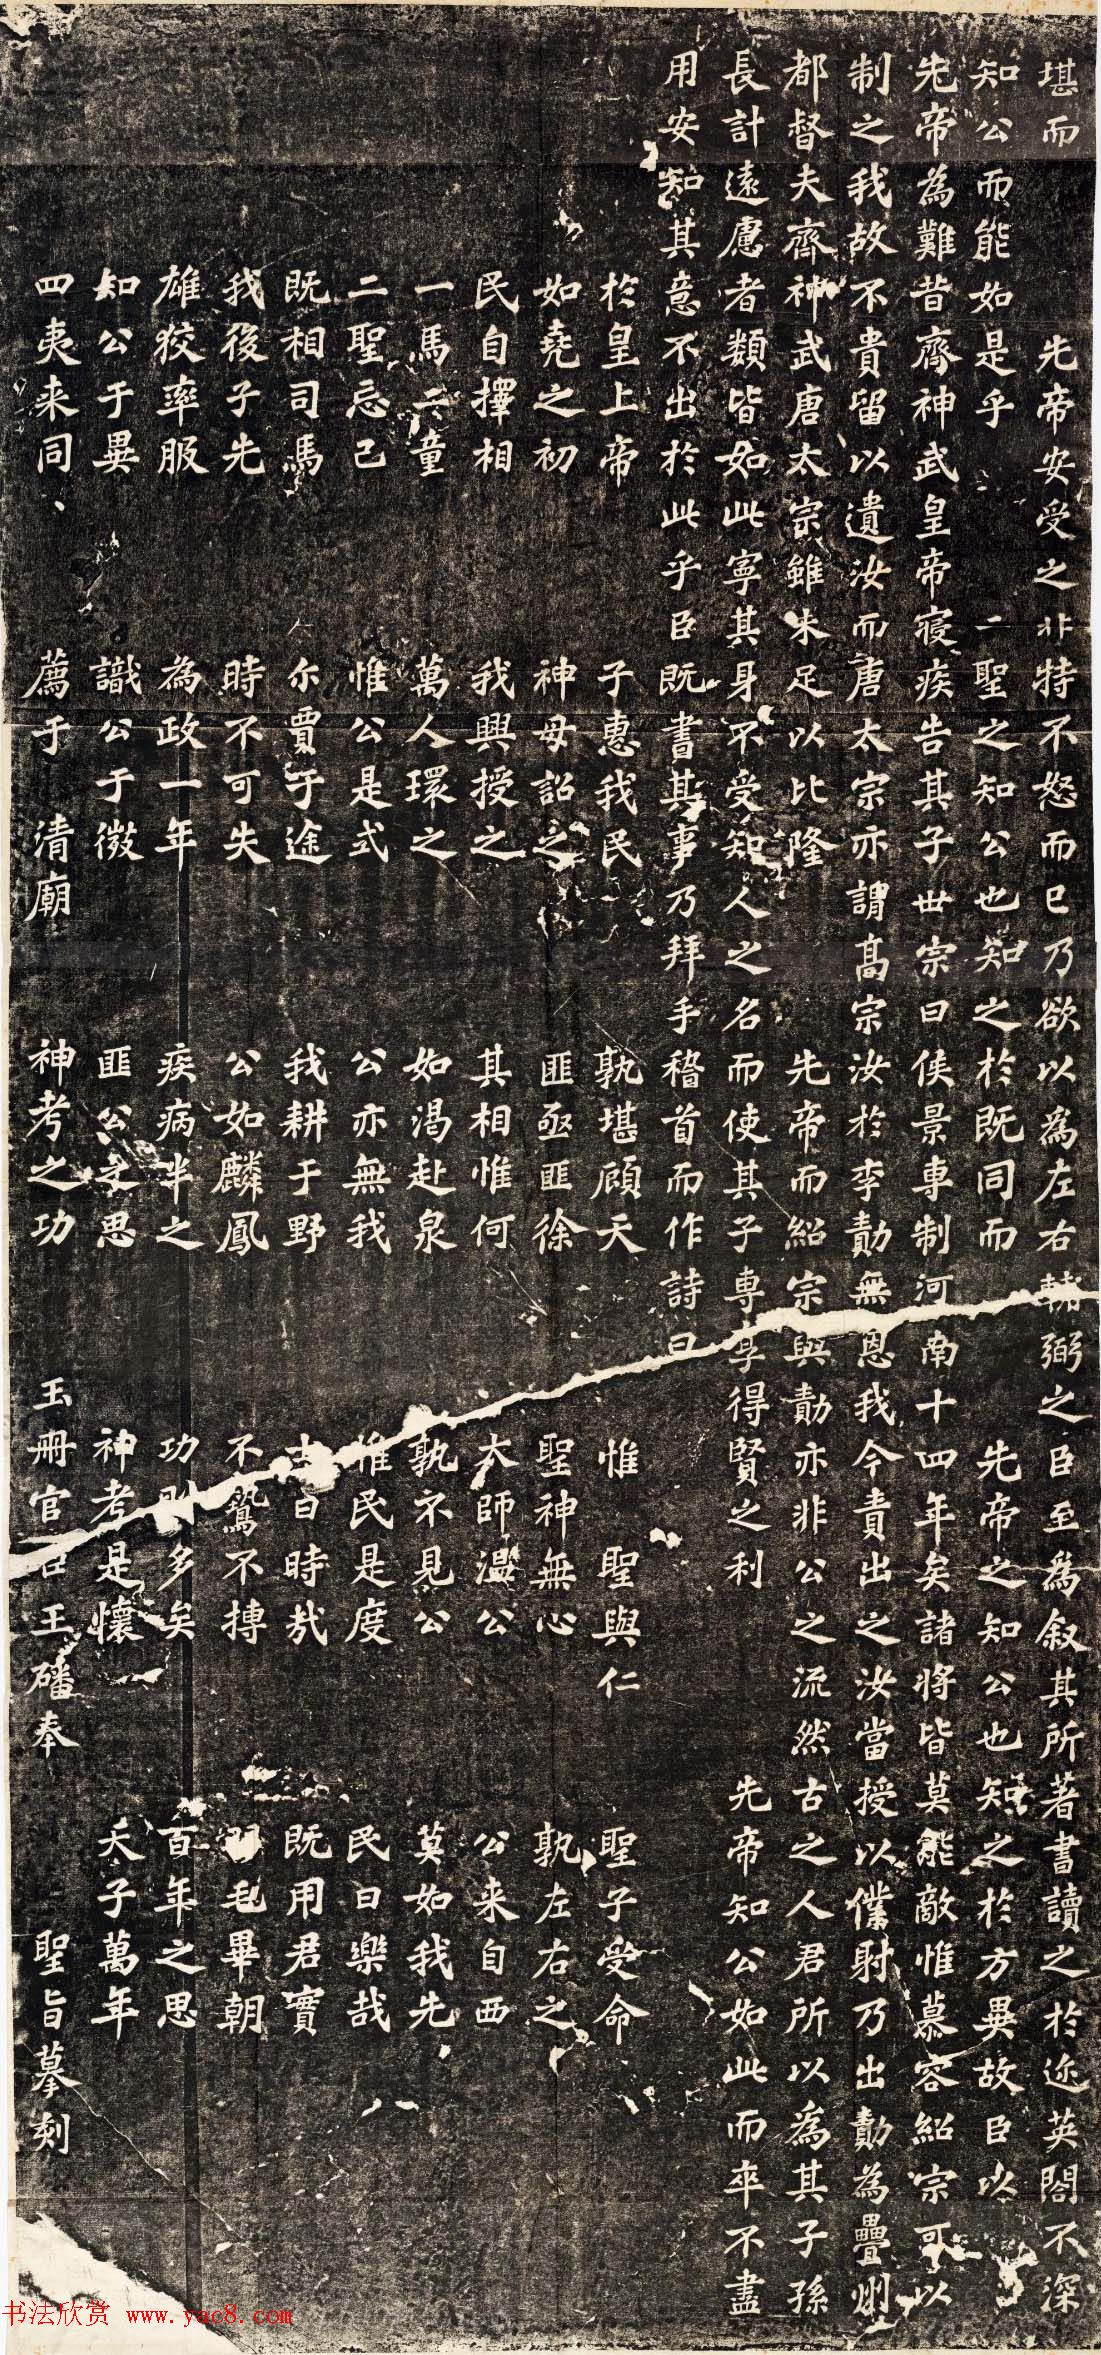 堪而　先帝安受之非特不怒而已乃欲以為左右輔弼之臣至為叙其所著書讀之於迩英閤不深
知公而能如是乎　二聖之知公也知之於既同而　先帝之知公也知之於方異故臣以
先帝為難昔齊神武皇帝寢疾告其子世宗曰侯景専制河南十四年矣諸將皆莫能敵惟慕容紹宗可以
制之我故不貴留以遺汝而唐太宗亦謂髙宗汝於李勣無恩我今責出之汝當授以僕射乃出勣為疊州
都督夫齊神武唐太宗雖未足以比隆　先帝而紹宗與勣亦非公之流然古之人君所以為其子孫
長計遠慮者類皆如此寧其身不受知人之名而使其子專享得賢之利　先帝知公如此而卒不盡
用安知其意不出於此乎臣既書其事乃拜手稽首而作詩曰
於皇上帝　子惠我民　孰堪顧天　惟聖與仁　聖子受命
如堯之初　神母詔之　匪亟匪徐　聖神無心　孰左右之
民自擇相　我興授之　其相惟何　太師溫公　公来自西
一馬二童　萬人環之　如渴赴泉　孰不見公　莫如我先
二聖忘己　惟公是式　公亦無我　惟民是度　民曰樂哉
既相司馬　尔賈于途　我耕于野　士曰時哉　既用君實
我後子先　時不可失　公如麟鳳　不鷙不搏　羽毛畢朝
雄狡率服　為政一年　疾病半之　功則多矣　百年之思
知公于異　識公于微　匪公之思　神考是懷　天子萬年
四夷来同、　薦于　清廟　神考之功　玉冊官臣王磻奉　聖旨摹刻
书法欣赏 www.yac8.com